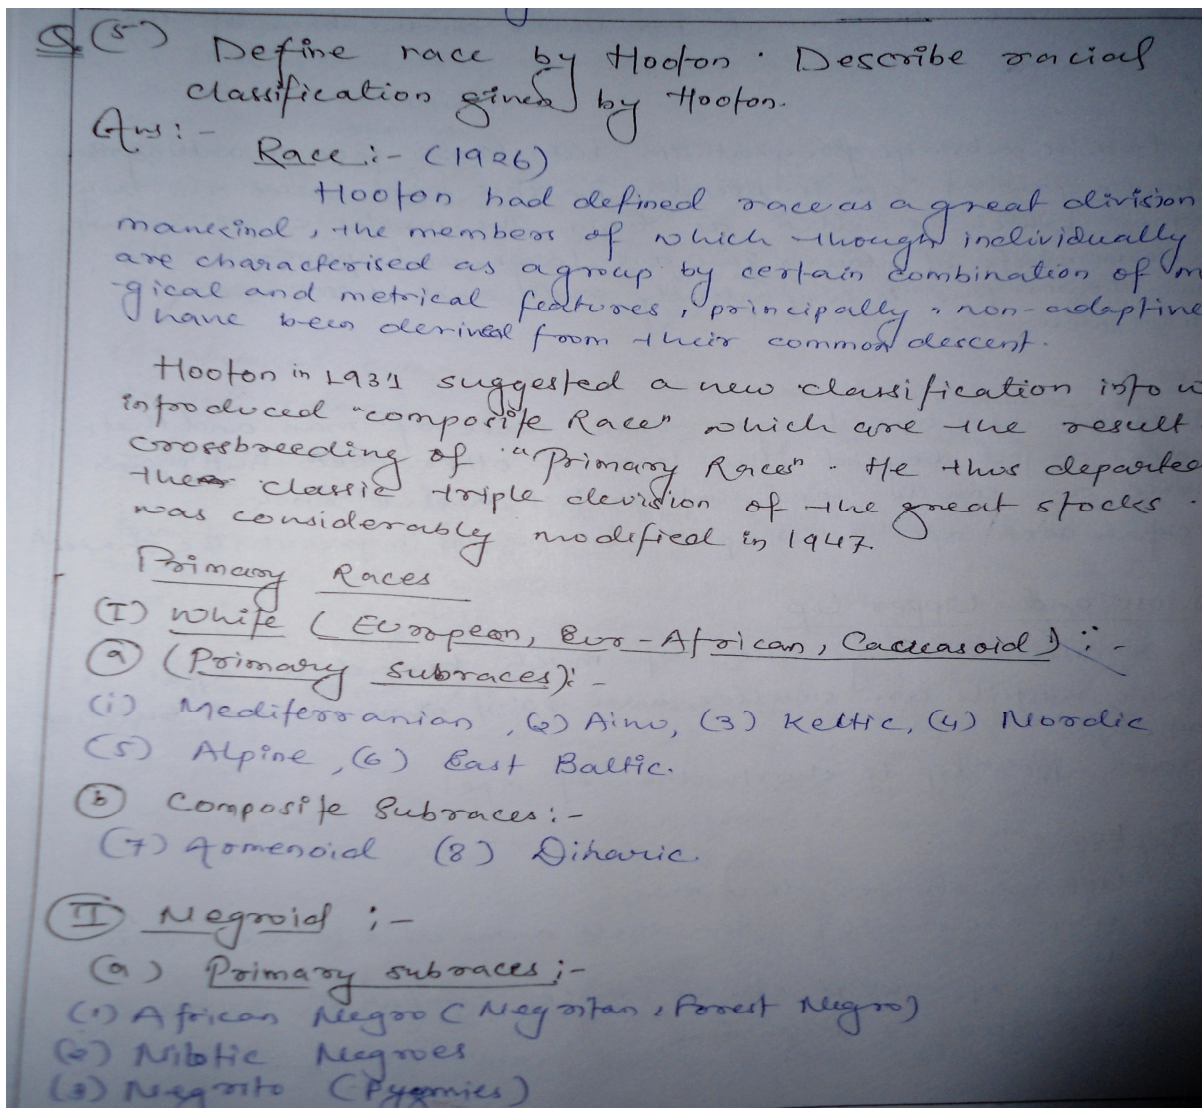 Q (5) Define race by Hooton. Describe racial
classification given by Hooton.
Ans:-
Race:- (1926)
Hooton had defined race as a great division
mankind, the members of which though individually
are characterised as a group by certain combination of m
gical and metrical features, principally, non-adaptive
have been derived from their common descent.
Hooton in 1931 suggested a new classification into w
introduced "composite Races" which are the result
crossbreeding of "Primary Races". He thus departed
the classic triple devision of the great stocks.
was considerably modified in 1947.
Primary Races
(I) White (European, Eur-African, Caucasoid):-
(a) (Primary Subraces):-
(i) Mediterranian, (2) Ainu, (3) Keltic, (4) Nordic
(5) Alpine, (6) East Baltic.
(b) Composite Subraces:-
(7) Armenoid (8) Dinaric.
(II) Negroid :-
(a) Primary subraces:-
(1) African Negro (Negritan, Forest Negro)
(2) Nilotic Negroes
(3) Negrito (Pygmies)